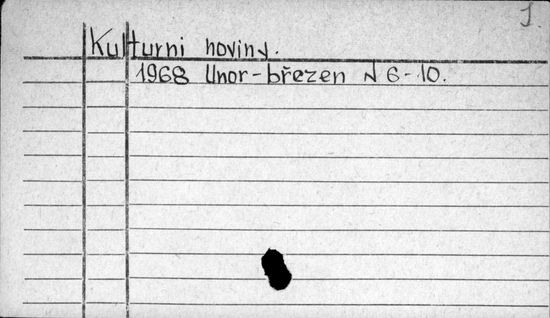 1.
Kulturni noviny.
1968 Unor-březen N 6-10.